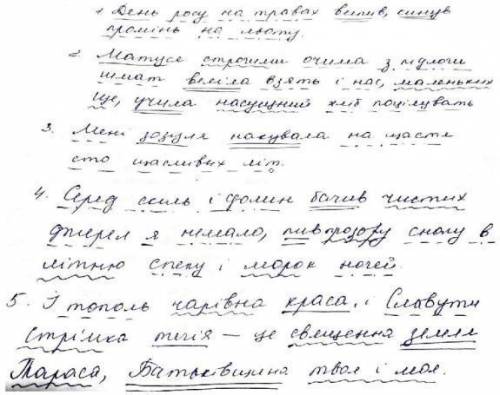 1. День росу на травах випив, кинув
промінь на м'яту.
2. Матуся строгими очима з підлоги
шмат веліла взять і нас, маленьких
ще, учила насущний хліб поцілувать
3. Мені зозуля накувала на щастя
сто щасливих літ.
4. Серед скель і долин бачив чистих
джерел я немало, пив прозору снагу в
літню спеку і морок ночей.
5. І тополь чарівна краса, і Славути
стрімка течія – це священна земля
Тараса, Батьківщина твоя і моя.